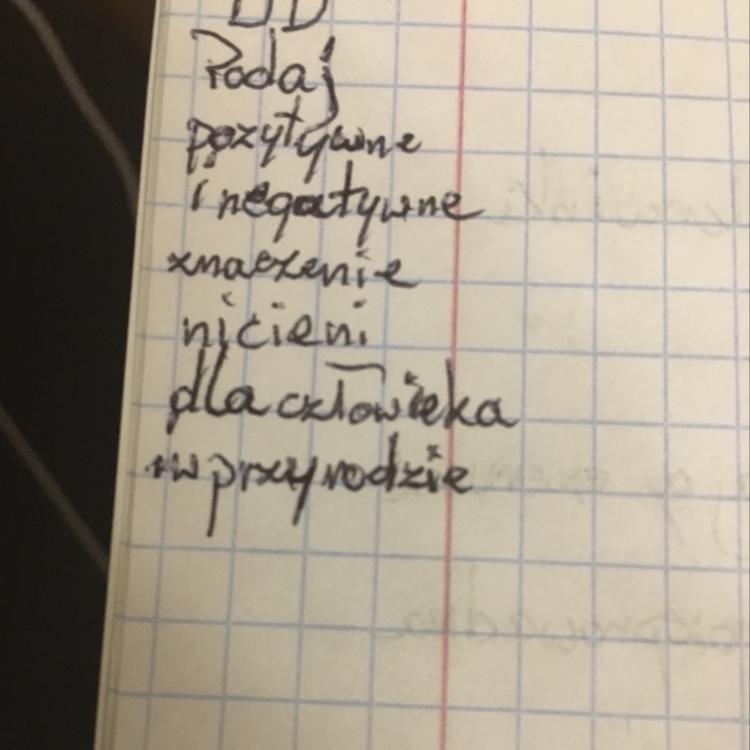 Podaj
pozytywne
i negatywne
znaczenie
nicieni
dla człowieka
w przyrodzie